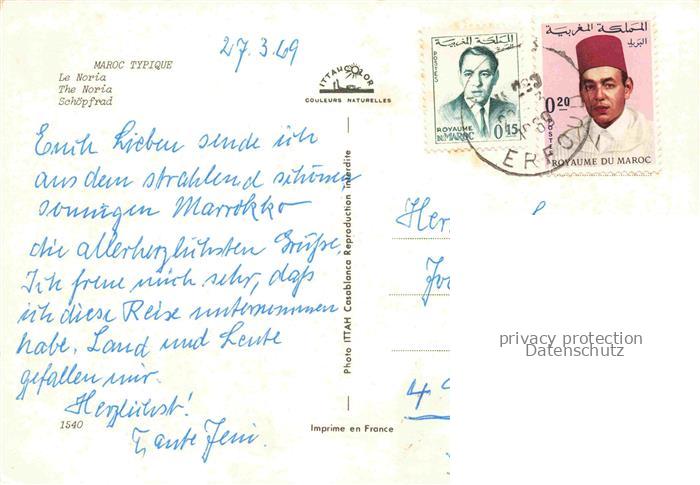 27.3.69
MAROC TYPIQUE
Le Noria
The Noria
Schöpfrad
ITTAHCOLOR
COULEURS NATURELLES
Euch Lieben sende ich
aus dem strahlend schönen
sonnigen Marrokko
die allerherzlichsten Grüße.
Ich freue mich sehr, daß
ich diese Reise unternommen
habe. Land und Leute
gefallen mir.
Herzlichst!
Tante Jeni.
1540
Imprimé en France
Photo ITTAH Casablanca Reproduction interdite
المملكة المغربية
POSTES
ROYAUME
DU MAROC
0.15
المملكة المغربية
البريد
0.20
POSTES
ROYAUME DU MAROC
ERFO
privacy protection
Datenschutz